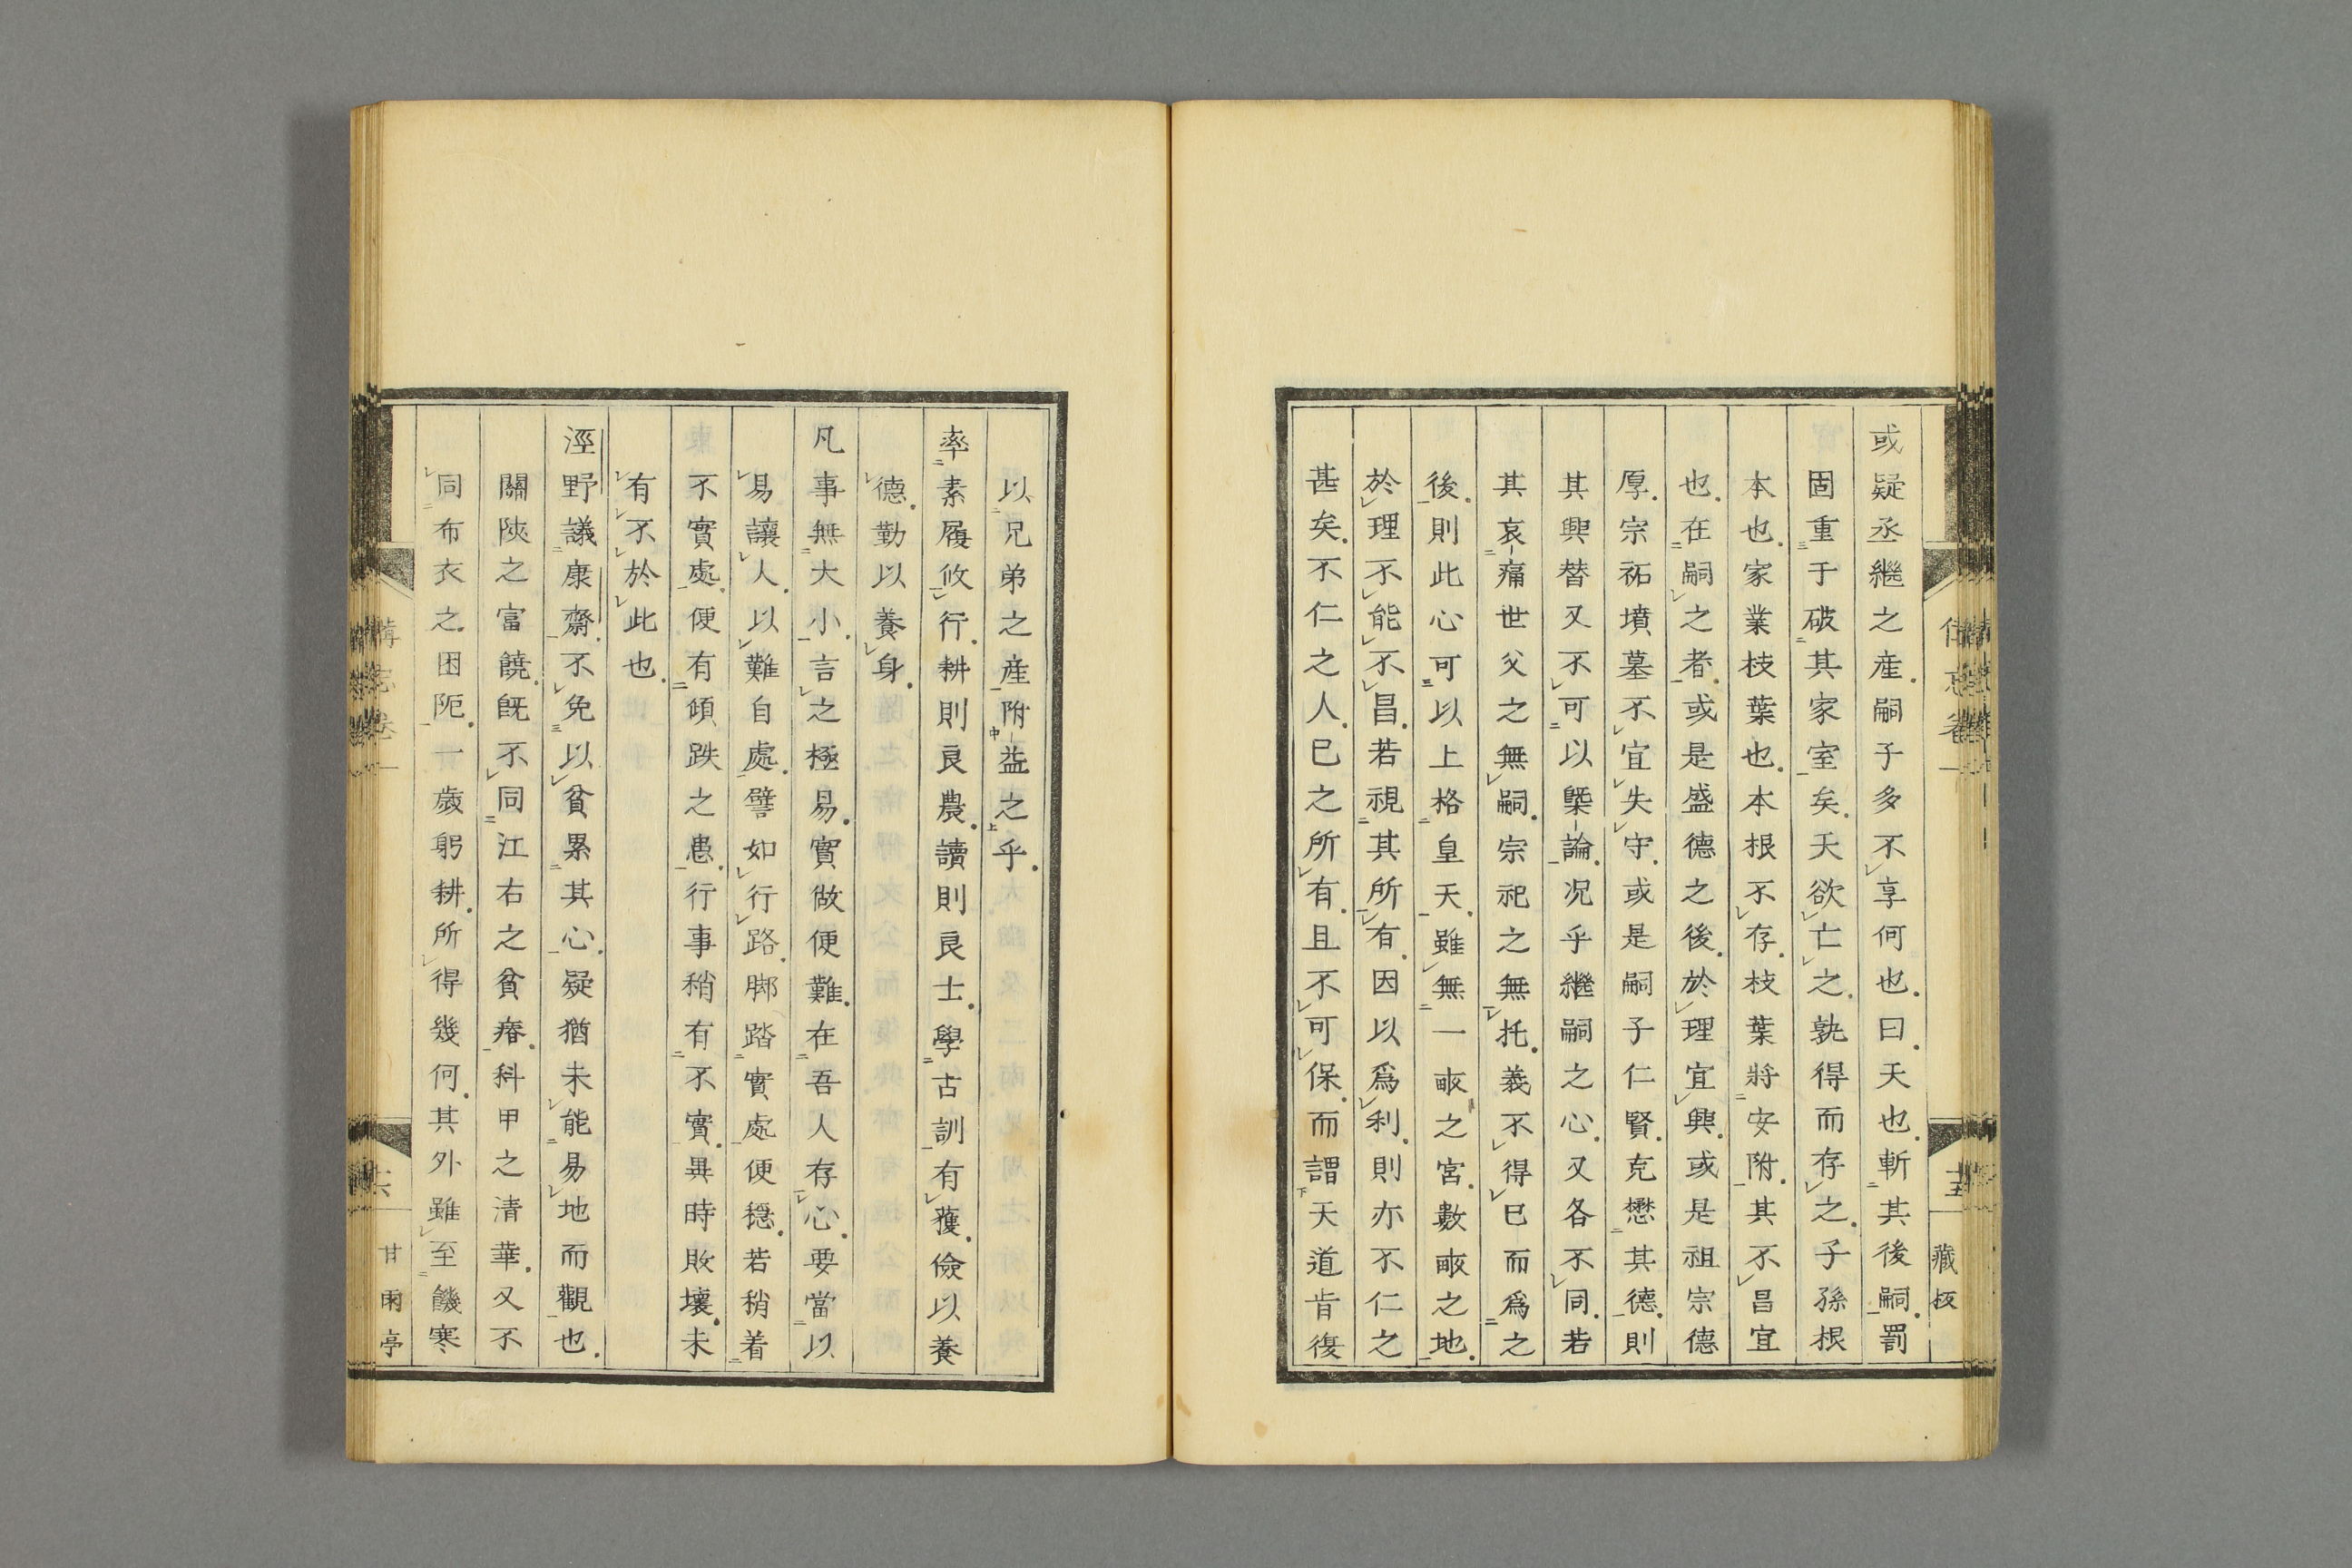 或疑丞繼之産嗣子多不享何也曰天也斬其後嗣罰
固重于破其家室矣天欲亡之孰得而存之子孫根
本也家業枝葉也本根不存枝葉將安附其不昌宜
也在嗣之者或是盛德之後於理宜興或是祖宗德
厚宗祏墳墓不宜失守或是嗣子仁賢克懋其德則
其興替又不可以槩論况乎繼嗣之心又各不同若
其哀痛世父之無嗣宗祀之無托義不得已而爲之
後則此心可以上格皇天雖無一畝之宮數畝之地
於理不能不昌若視其所有因以爲利則亦不仁之
甚矣不仁之人已之所有且不可保而謂天道肯復
以兄弟之産附益之乎
率素履攸行耕則良農讀則良士學古訓有獲儉以養
德勤以養身
凡事無大小言之極易實做便難在吾人存心要當以
易讓人以難自處譬如行路脚踏實處便穩若稍着
不實處便有傾跌之患行事稍有不實異時敗壞未
有不於此也
涇野議康齋不免以貧累其心疑猶未能易地而觀也
關陝之富饒旣不同江右之貧瘠科甲之清華又不
同布衣之困阨一歲躬耕所得幾何其外雖至饑寒
備忘卷一
十五
藏板
備忘卷一
十六
甘雨亭